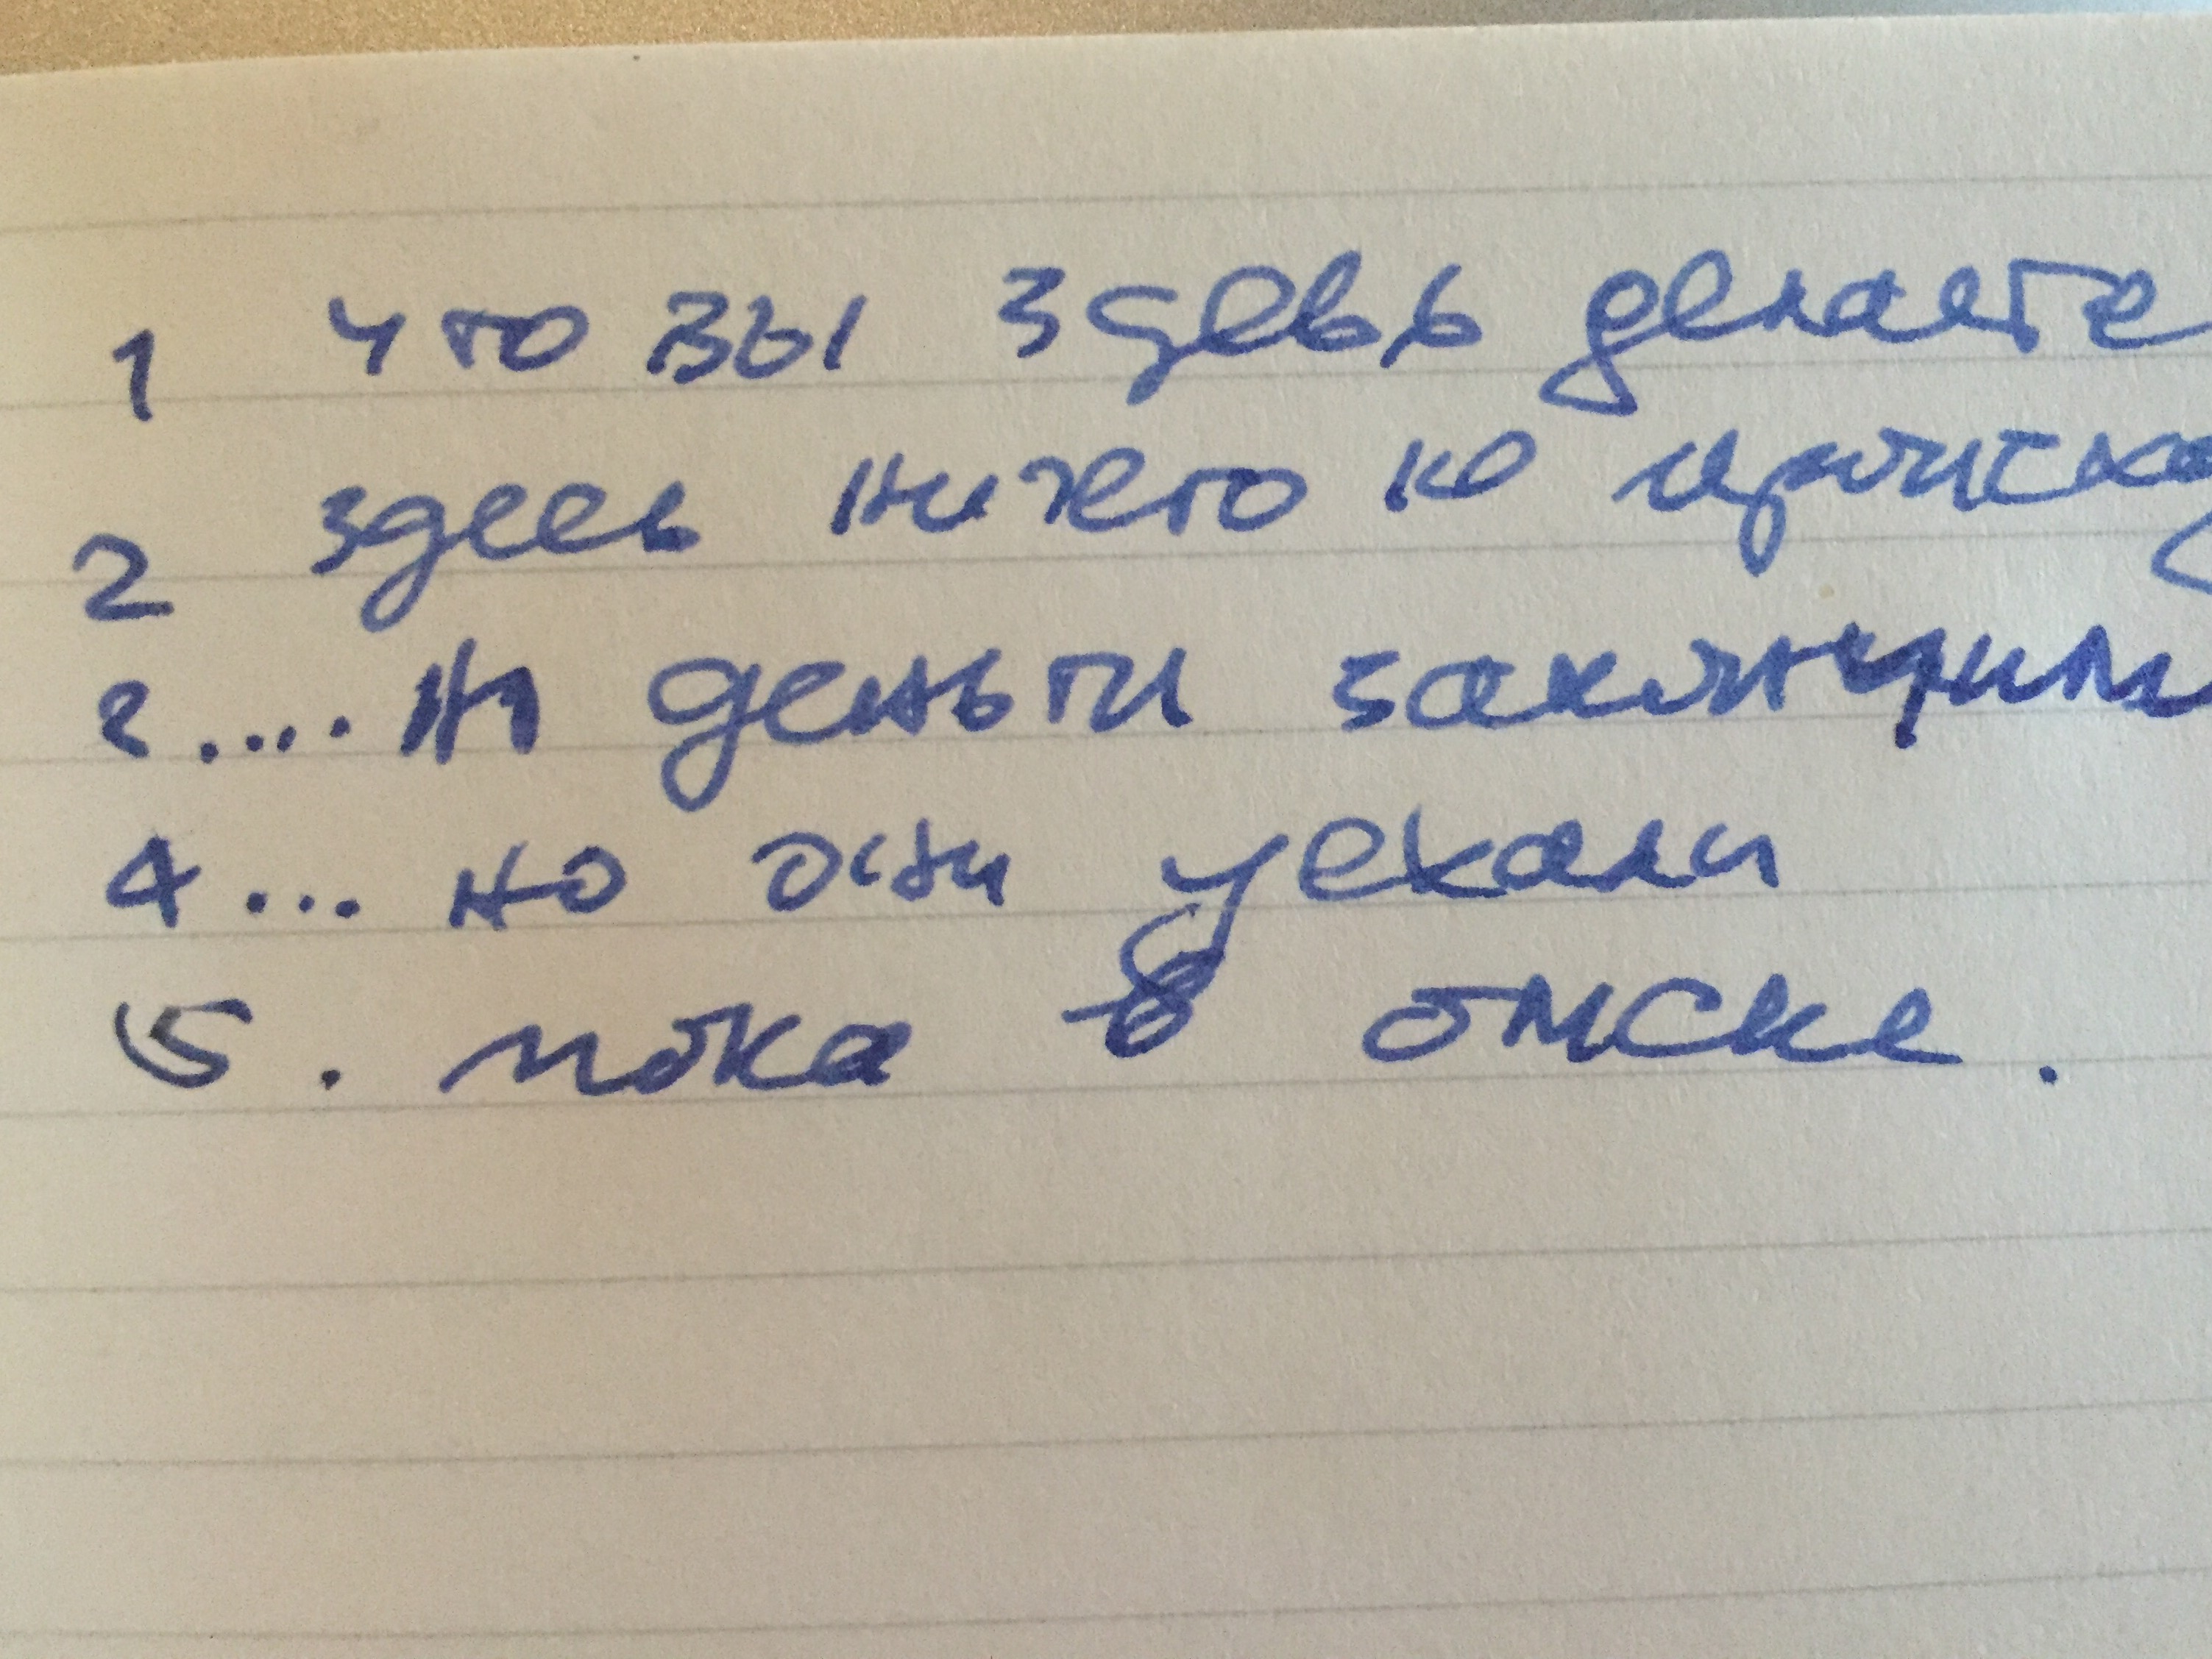 1 что вы здесь делаете
2 здесь ничего не
2.... деньги закончили
4... но они уехали
5. пока в омске.